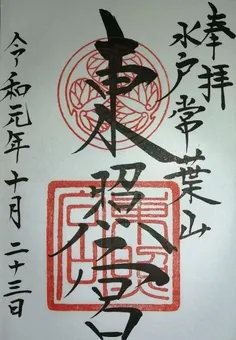 奉拝
水戸常葉山
東照公宮
令和元年十月二十三日
東照宮